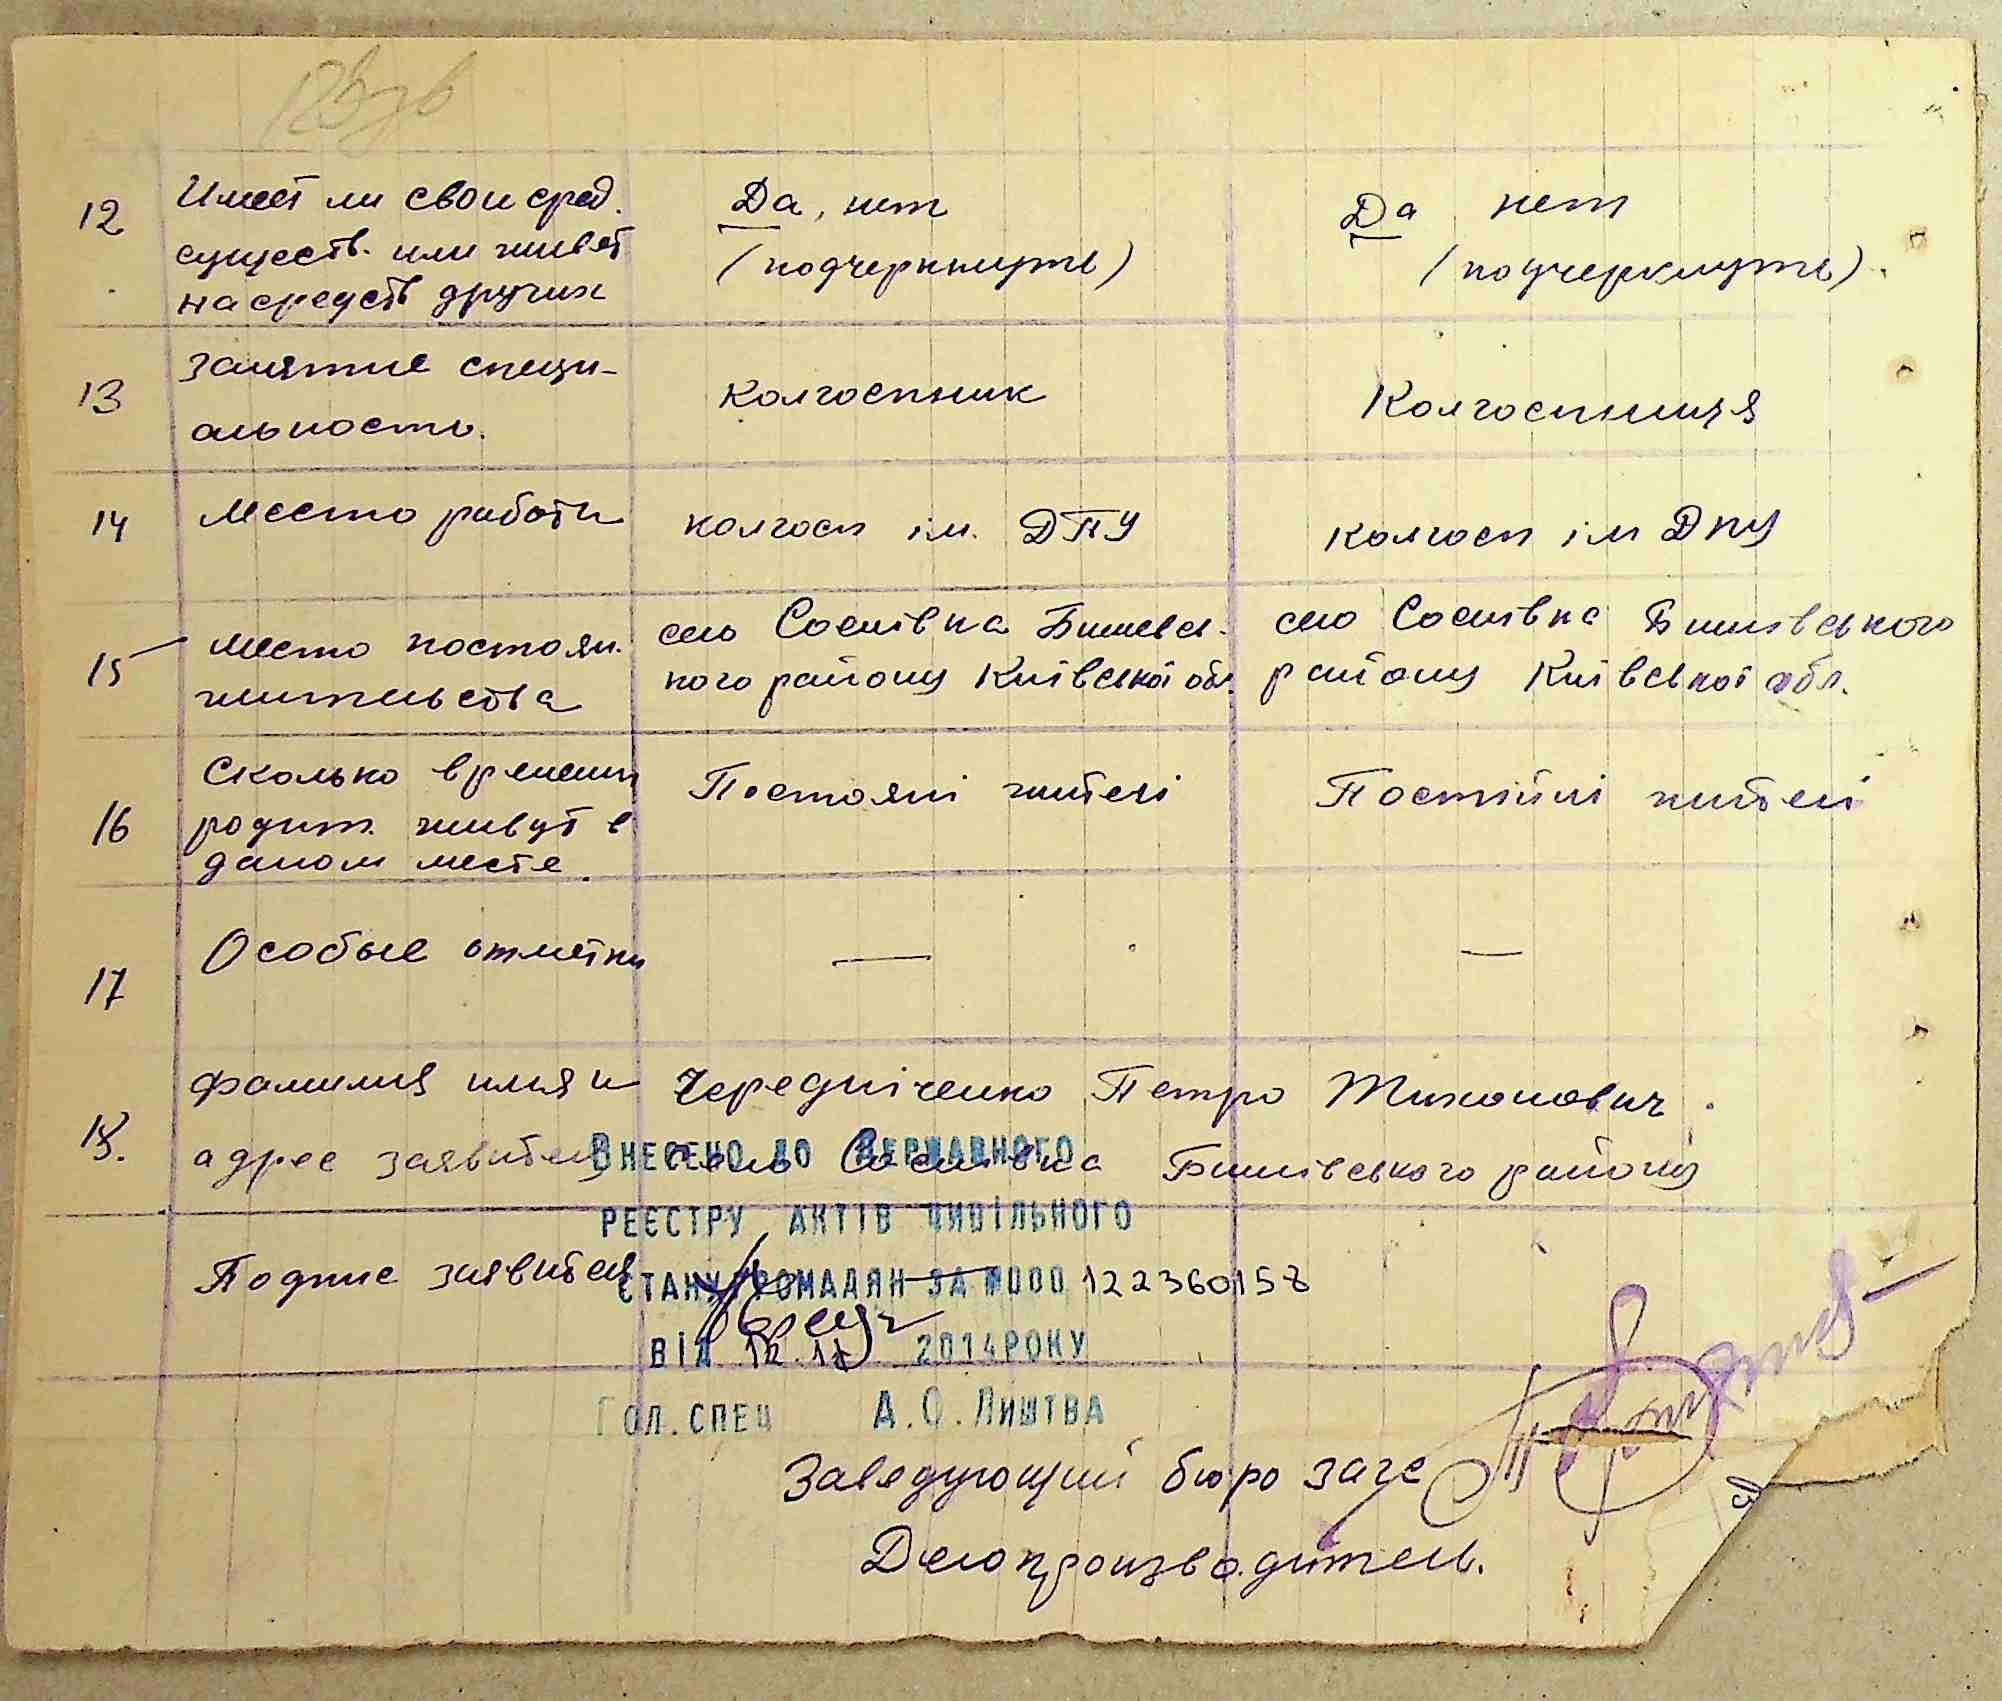 12 Имеет ли свои сред. Да, нет Да нет
существ. или живет (подчеркнуть) (подчеркнуть).
на средств других
13 Занятие специ- Колгоспник Колгоспниця
альность.
14 Место работы колгосп ім. ДПУ колгосп ім ДПУ
15 место постоян. село Соснівка Бишевсь- село Соснівка Бишівського
жительства кого району Київської обл. району Київської обл.
16 Сколько времени Постояні жителі Постійні жителі
родит. живут в
даном месте.
17 Особые отметки — —
18. фамилия имя и Чередніченко Петро Тихонович.
адрес заявителя село Соснівка Бишівського району
ВНЕСЕНО ДО ДЕРЖАВНОГО
РЕЄСТРУ АКТІВ ЦИВІЛЬНОГО
Подпис заявителя
СТАНУ ГРОМАДЯН ЗА №000 122360158
ВІД 12.11 2014РОКУ
ГОЛ.СПЕЦ А.О.ЛИШТВА
Заведующий бюро загс
Делопроизводитель.